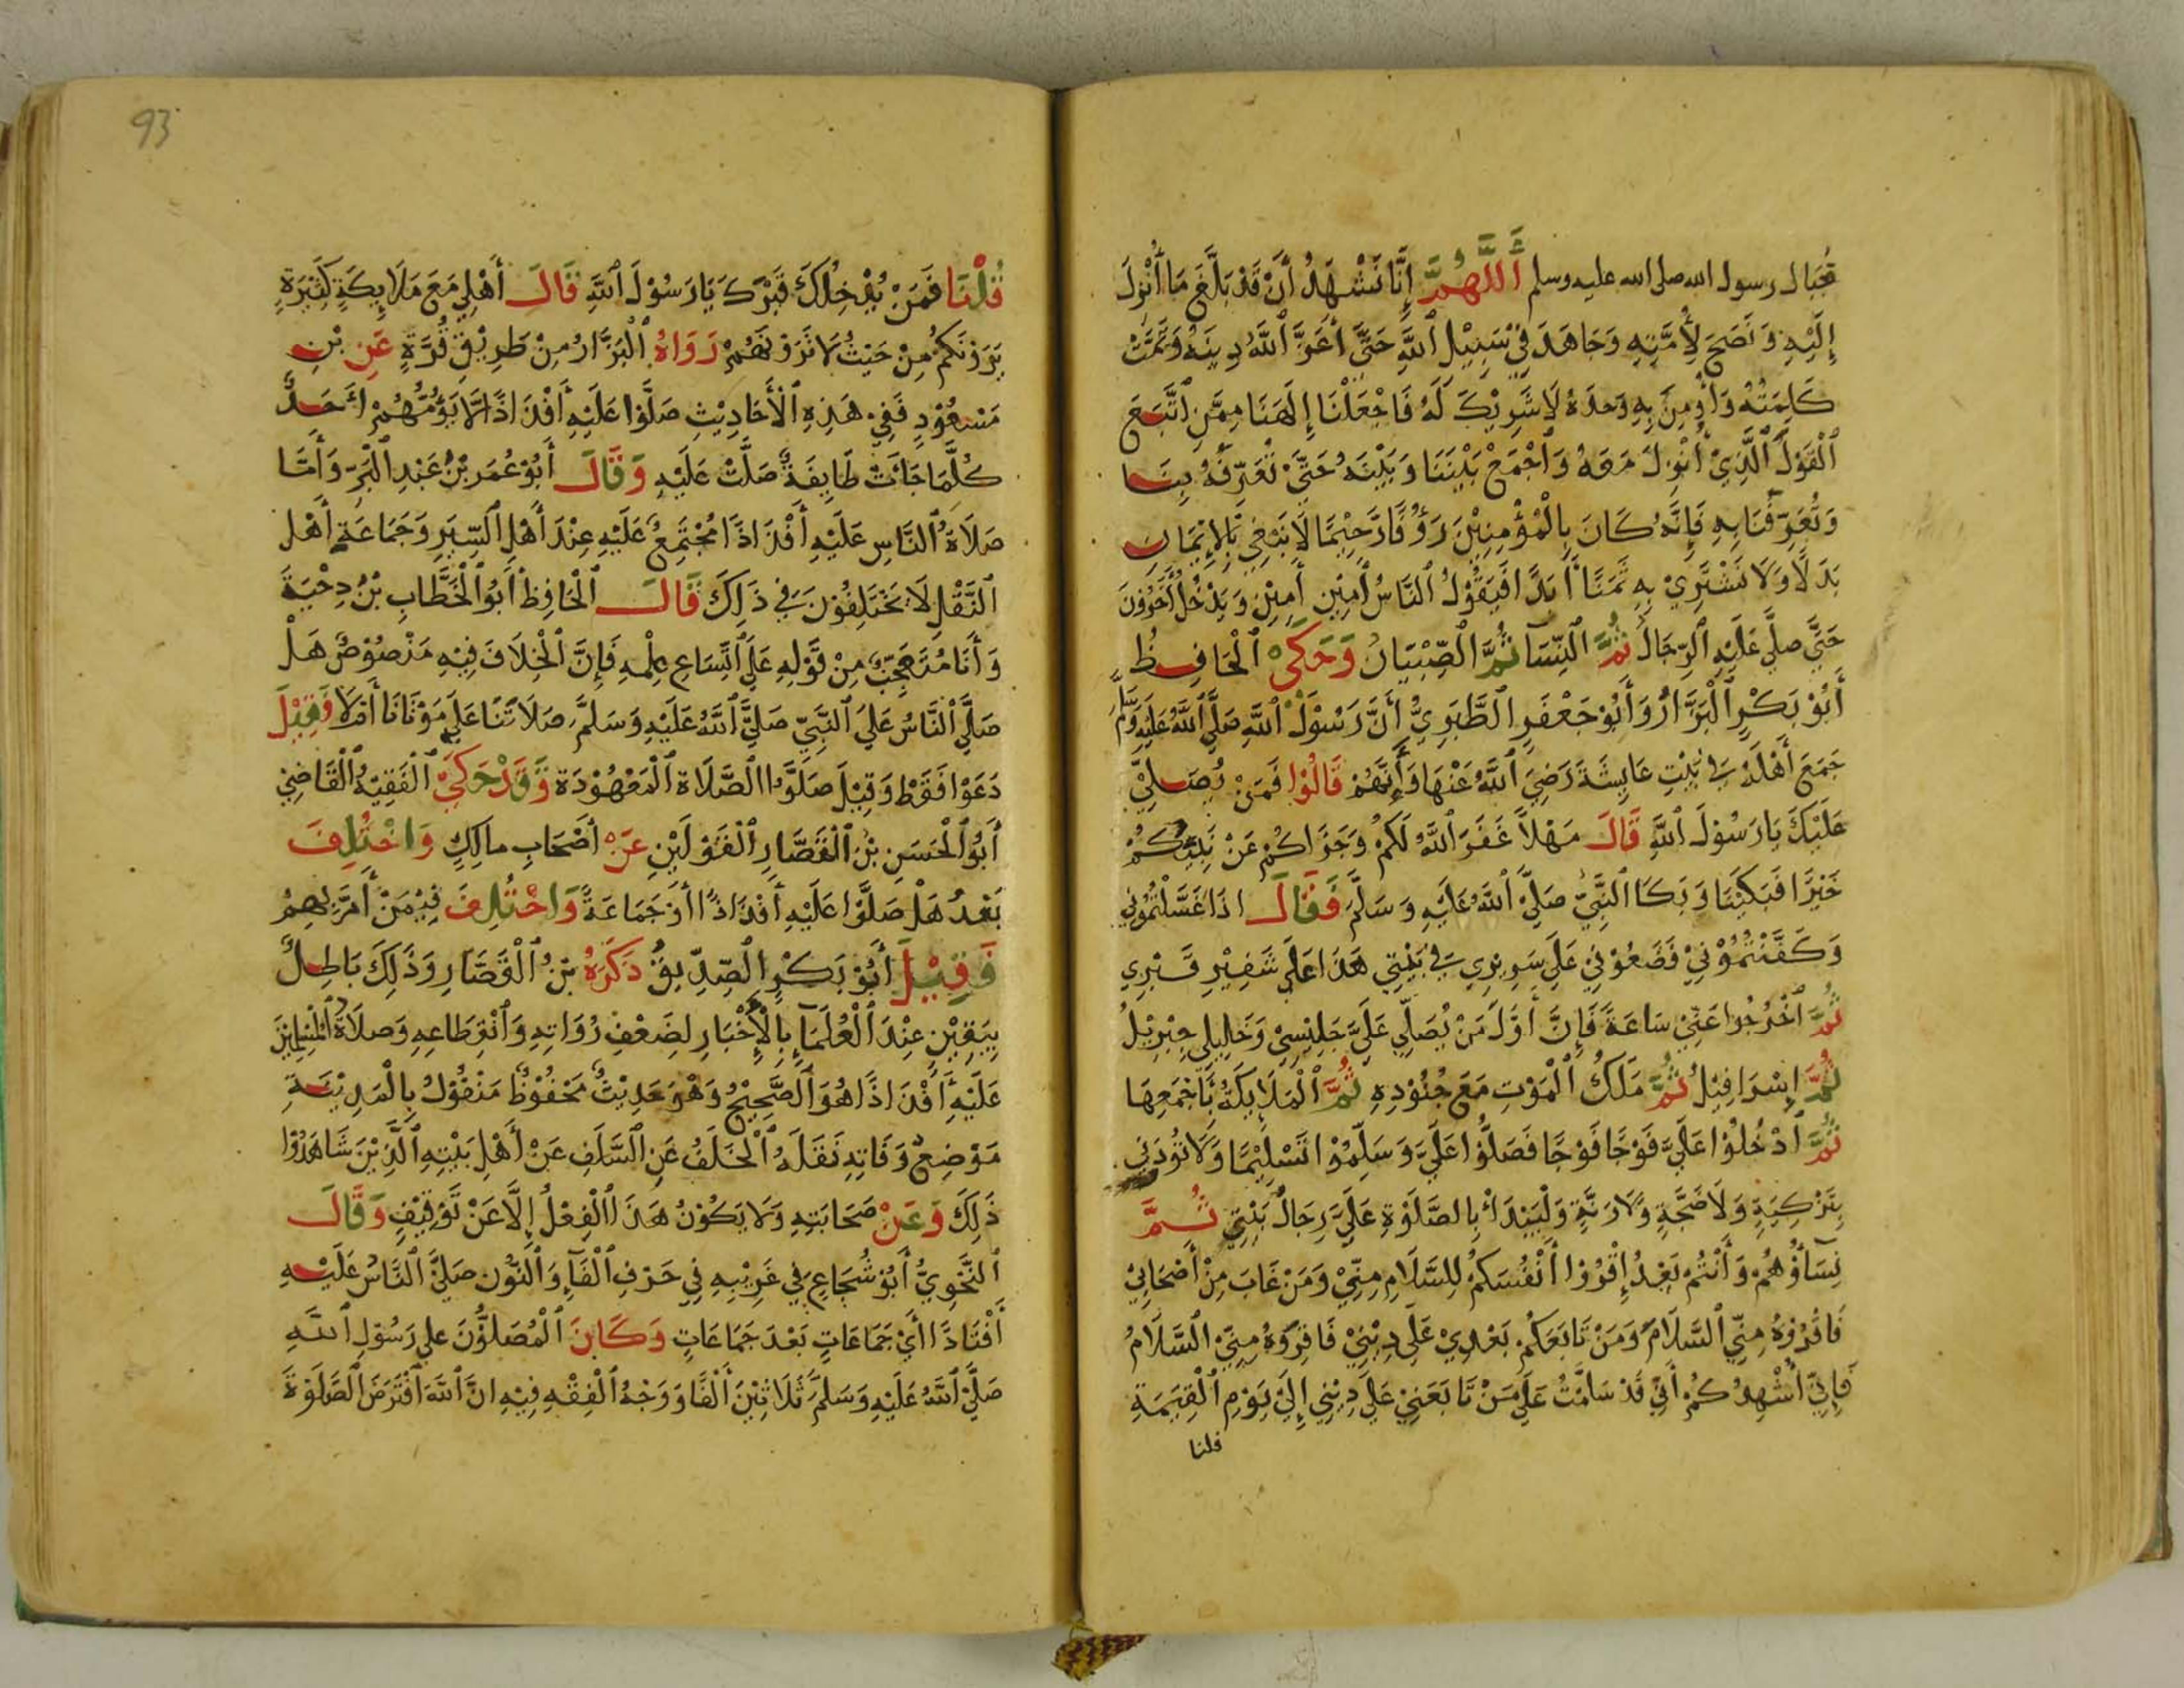 حِبَال رسول الله صلى الله عليه وسلم أَللَّهُمَّ إِنَّا نَشْهَدُ أَنْ قَدْ بَلَّغَ مَا أُنْزِلَ
إِلَيْهِ وَنَصَحَ لِأُمَّتِهِ وَجَاهَدَ فِي سَبِيْلِ ٱللَّهِ حَتَّى أَعَزَّ ٱللَّهُ دِينَهُ وَتَمَّتْ
كَلِمَتُهُ وَأُومِنَ بِهِ وَحدَهُ لَا شَرِيْكَ لَهُ فَاجْعَلْنَا إِلَهَنَا مِمَّنِ اتَّبَعَ
ٱلْقَوْلَ ٱلَّذِيْ أُنْزِلَ مَعَهُ وَاجْمَعْ بَيْنَنَا وَبَيْنَهُ حَتَّى تُعَرِّفَهُ بِنَا
وَتُعَرِّفَنَا بِهِ فَإِنَّهُ كَانَ بِالْمُؤْمِنِيْنَ رَؤُوفًا رَّحِيْمًا لَا نَبْتَغِي بِالإِيْمَانِ
بَدَلًا وَلَا نَشْتَرِيْ بِهِ ثَمَنًا أَبَدًا فَيَقُوْلُ ٱلنَّاسُ أَمِيْنِ أَمِيْنِ وَيَدْخُلُ أَخَرُوْنَ
حَتَّى صلَّى عَلَيْهِ ٱلرِّجَالُ ثُمَّ ٱلنِّسَا ثُمَّ ٱلصِّبْيَانُ وَحَكَى ٱلْحَافِظُ
أَبُوْ بَكْرٍ ٱلْبَزَّارُ وَأَبُوْ جَعْفَرٍ ٱلطَّبَرِيُّ أَنَّ رَسُوْلَ ٱللَّهِ صَلَّى ٱللَّهُ عَلَيْهِ وَسَلَّمَ
جَمَعَ أَهْلَهُ فِي بَيْتِ عَايِشَةَ رَضِيَ ٱللَّهُ عَنْهَا وَأَنَّهُمْ قَالُوْا فَمَنْ يُصَلِّيْ
عَلَيْكَ يَا رَسُوْلَ ٱللَّهِ قَالَ مَهْلاً غَفَرَ ٱللَّهُ لَكُمْ وَجَزَاكُمْ عَنْ نَبِيِّكُمْ
خَيْرًا فَبَكَيْنَا وَبَكَا ٱلنَّبِيُّ صَلَّى ٱللَّهُ عَلَيْهِ وَسَلَّمَ فَقَالَ اذَا غَسَّلْتُمُوْنِي
وَكَفَّنْتُمُوْنِيْ فَضَعُوْنِيْ عَلَى سَرِيْرِي فِي بَيْتِي هَذَا عَلَى شَفِيْرِ قَبْرِي
ثُمَّ ٱخْرُجُوا عَنِّيْ سَاعَةً فَإِنَّ أَوَّلَ مَنْ يُصَلِّي عَلَيَّ جَلِيْسِيْ وَخَلِيلِي جِبْرِيْلُ
ثُمَّ إِسْرَافِيْلُ ثُمَّ مَلَكُ ٱلْمَوْتِ مَعَ جُنُوْدِهِ ثُمَّ ٱلْمَلَايِكَةُ بِأَجْمَعِهَا
ثُمَّ ٱدْخُلُوْا عَلَيَّ فَوْجًا فَوْجًا فَصَلُّوْا عَلَيَّ وَسَلِّمُوْا تَسْلِيْمًا وَلَا تُؤْذُوْنِي
بِتَزْكِيَةٍ وَلَا ضَجَّةٍ وَلَا رَنَّةٍ وَلْيَبْدَأْ بِالصَّلَوٰةِ عَلَيَّ رِجَالُ بَيْتِيْ ثُمَّ
نِسَاؤُهُمْ وَأَنْتُمْ بَعْدُ إِقْرَؤُا أَنْفُسَكُمْ لِلسَّلَامِ مِنِّيْ وَمَنْ غَابَ مِنْ أَصْحَابِيْ
فَاقْرُؤْهُ مِنِّي ٱلسَّلَامَ وَمَنْ تَابَعَكُمْ بَعْدِيْ عَلَى دِيْنِيْ فَاقْرِؤُهُ مِنِّي ٱلسَّلَامَ
فَإِنِّيْ أُشْهِدُكُمْ أَنِّيْ قَدْ سَلَّمْتُ عَلَى مَنْ تَابَعَنِيْ عَلَى دِيْنِي إِلَى يَوْمِ ٱلْقِيَمَةِ
قلنا
93
قُلْنَا فَمَنْ يُدْخِلُكَ قَبْرَكَ يَا رَسُوْلَ ٱللَّهِ قَالَ أَهْلِيْ مَعَ مَلَايِكَةٍ كَثِيْرَةٍ
يَرَوْنَكُمْ مِنْ حَيْثُ لَا تَرَوْنَهُمْ رَوَاهُ ٱلْبَزَّارُ مِنْ طَرِيْقِ قُرَّةٍ عَنِ بْنِ
مَسْعُوْدٍ فَفِيْ هَذِهِ ٱلْأَحَادِيْثِ صَلَّوْا عَلَيْهِ أَفْذَاذًا لَا يَؤُمُّهُمْ أَحَدٌ
كُلَّمَا جَاءَتْ طَايِفَةٌ صَلَّتْ عَلَيْهِ وَقَالَ أَبُوْ عُمَرَ بْنُ عَبْدِ الْبَرِّ وَأَمَّا
صَلَاةُ ٱلنَّاسِ عَلَيْهِ أَفْذَاذًا مُجْتَمَعٌ عَلَيْهِ عِنْدَ أَهْلِ ٱلسِّيَرِ وَجَمَاعَةِ أَهْلِ
ٱلنَّقْلِ لَا يَخْتَلِفُوْنَ فِي ذَلِكَ قَالَ ٱلْحَافِظُ أَبُو ٱلْخَطَّابِ بْنُ دِحْيَةَ
وَأَنَا مُتَعَجِّبٌ مِنْ قَوْلِهِ عَلَى ٱتِّسَاعِ عِلْمِهِ فَإِنَّ ٱلْخِلَافَ فِيْهِ مَنْصُوْصٌ هَلْ
صَلَّى ٱلنَّاسُ عَلَى ٱلنَّبِيِّ صَلَّى ٱللَّهُ عَلَيْهِ وَسَلَّمَ صَلَاتَنَا عَلَى مَوْتَانَا أَمْ لَا فَقِيْلَ
دَعَوْا فَقَطْ وَقِيْلَ صَلَّوُا ٱلصَّلَاة ٱلْمَعْهُوْدَة وَقَدْ حَكَى ٱلْفَقِيْهُ ٱلْقَاضِيْ
أَبُو ٱلْحَسَنِ بْنُ ٱلْقَصَّارِ ٱلْقَوْلَيْنِ عَنْ أَصْحَابِ مالِكٍ وَاخْتُلِفَ
بَعْدُ هَلْ صَلَّوْا عَلَيْهِ أَفْذَاذًا أَوْ جَمَاعَةً وَاخْتُلِفَ فِيْمَنْ أَمَّ بِهِمْ
فَقِيْلَ أَبُوْ بَكْرٍ الصِّدِّيقُ ذَكَرَهُ بْنُ ٱلْقَصَّارِ وَذَلِكَ بَاطِلٌ
بِيَقِيْنٍ عِنْدَ ٱلْعُلَمَآءِ بِالْأَخْبَارِ لِضَعْفِ رُوَاتِهِ وَٱنْقِطَاعِهِ وَصلَاةُ ٱلْمُسْلِمِيْنَ
عَلَيْهِ أَفْذَاذًا هُوَ ٱلصَّحِيْحُ وَهْوَ حَدِيْثٌ مَحْفُوْظٌ مَنْقُوْلٌ بِالْمَدِيْنَةِ
مَوْضِعُ وَفَاتِهِ نَقَلَهُ ٱلْخَلَفُ عَنِ السَّلَفِ عَنْ أَهْلِ بَيْتِهِ ٱلَّذِيْنَ شَاهَدُوْا
ذَلِكَ وَعَنْ صَحَابَتِهِ وَلَا يَكُوْنُ هَذَا ٱلْفِعْلُ إِلَّا عَنْ تَوْقِيْفٍ وَقَالَ
ٱلنَّحْوِيُّ أَبُوْ شُجَاعٍ فِي غَرِيْبِهِ فِي حَرْفِ ٱلْفَآءِ وَٱلنُّوْن صَلَّى ٱلنَّاسُ عَلَيْهِ
أَفْنَاذًا أَيْ جَمَاعَاتٍ بَعْدَ جَمَاعَاتٍ وَكَانَ ٱلْمُصَلُّوْنَ عَلَى رَسُوْلِ ٱللَّهِ
صَلَّى ٱللَّهُ عَلَيْهِ وَسَلَّمَ ثَلَاثِيْنَ أَلْفًا وَوَجْهُ ٱلْفِقْهِ فِيْهِ انَّ ٱللَّهَ ٱفْتَرَضَ ٱلصَّلَوٰةَ